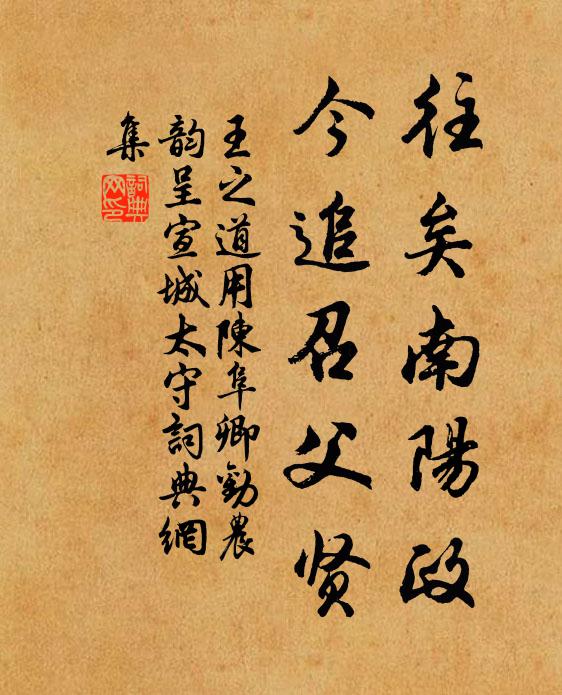 往矣南陽政
今追召父贤
王之道用陳阜卿勸農
韵呈宣城太守詞典網
集
詞典
网印